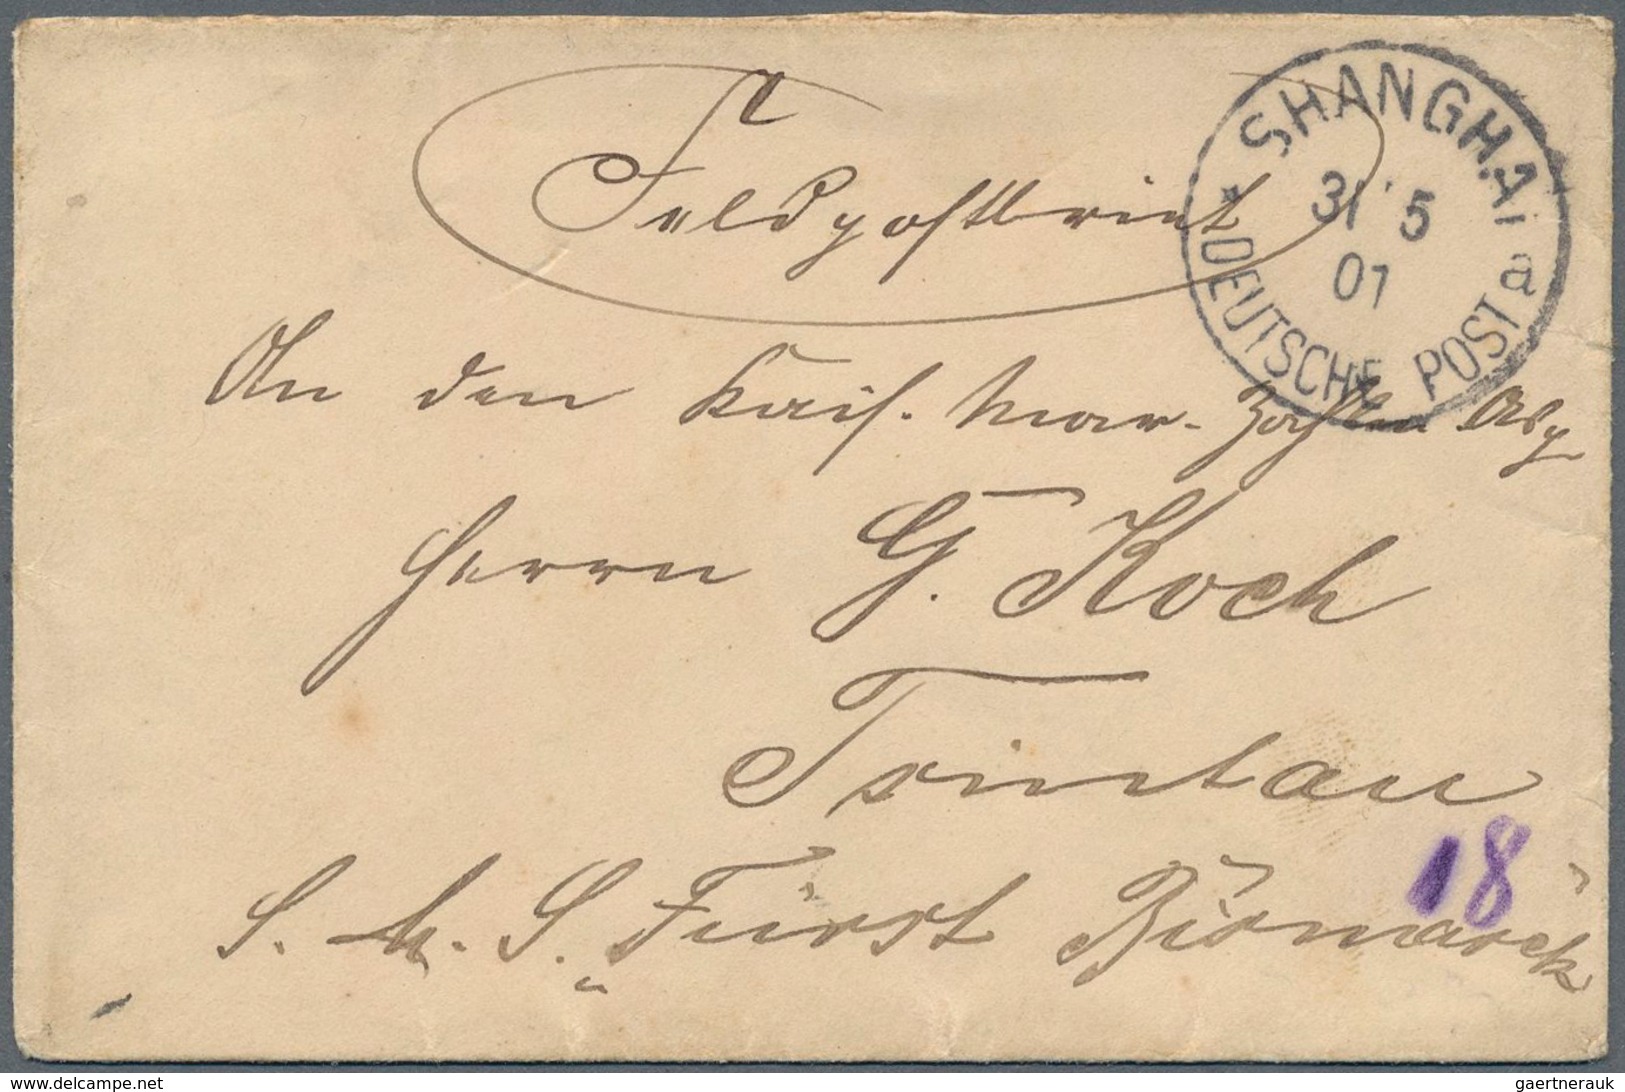 Feldpostbrief
SHANGHAI
31 5
01
a
* DEUTSCHE POST
An den Kais. Mar. Zahlm. Asp.
Herrn G. Koch
Tsintau
S. M. S. „Fürst Bismarck
18
www.delcampe.net
gaertnerauk